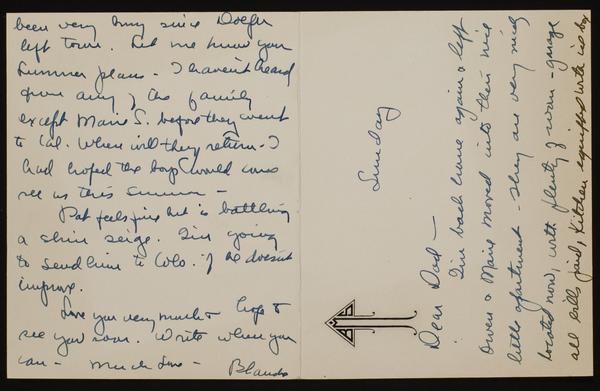 Sunday
Dear Dad —
I'm back home again & left
Owen & Marie moved into their nice
little apartment - They are very nicely
located now, with plenty of room - garage
all bills paid, kitchen equipped with ice box
been very busy since
left town. Let me know your
Summer plans - I haven't heard
from any of the family
except Marie S. before they went
to Cal. When will they return - I
had hoped the boys would come
see us this summer -
Pat feels fine but is battling
a skin seige. I'm going
to send him to Colo. if he doesn't
improve.
Love you very much & hope to
see you soon. Write when you
can - Much love -